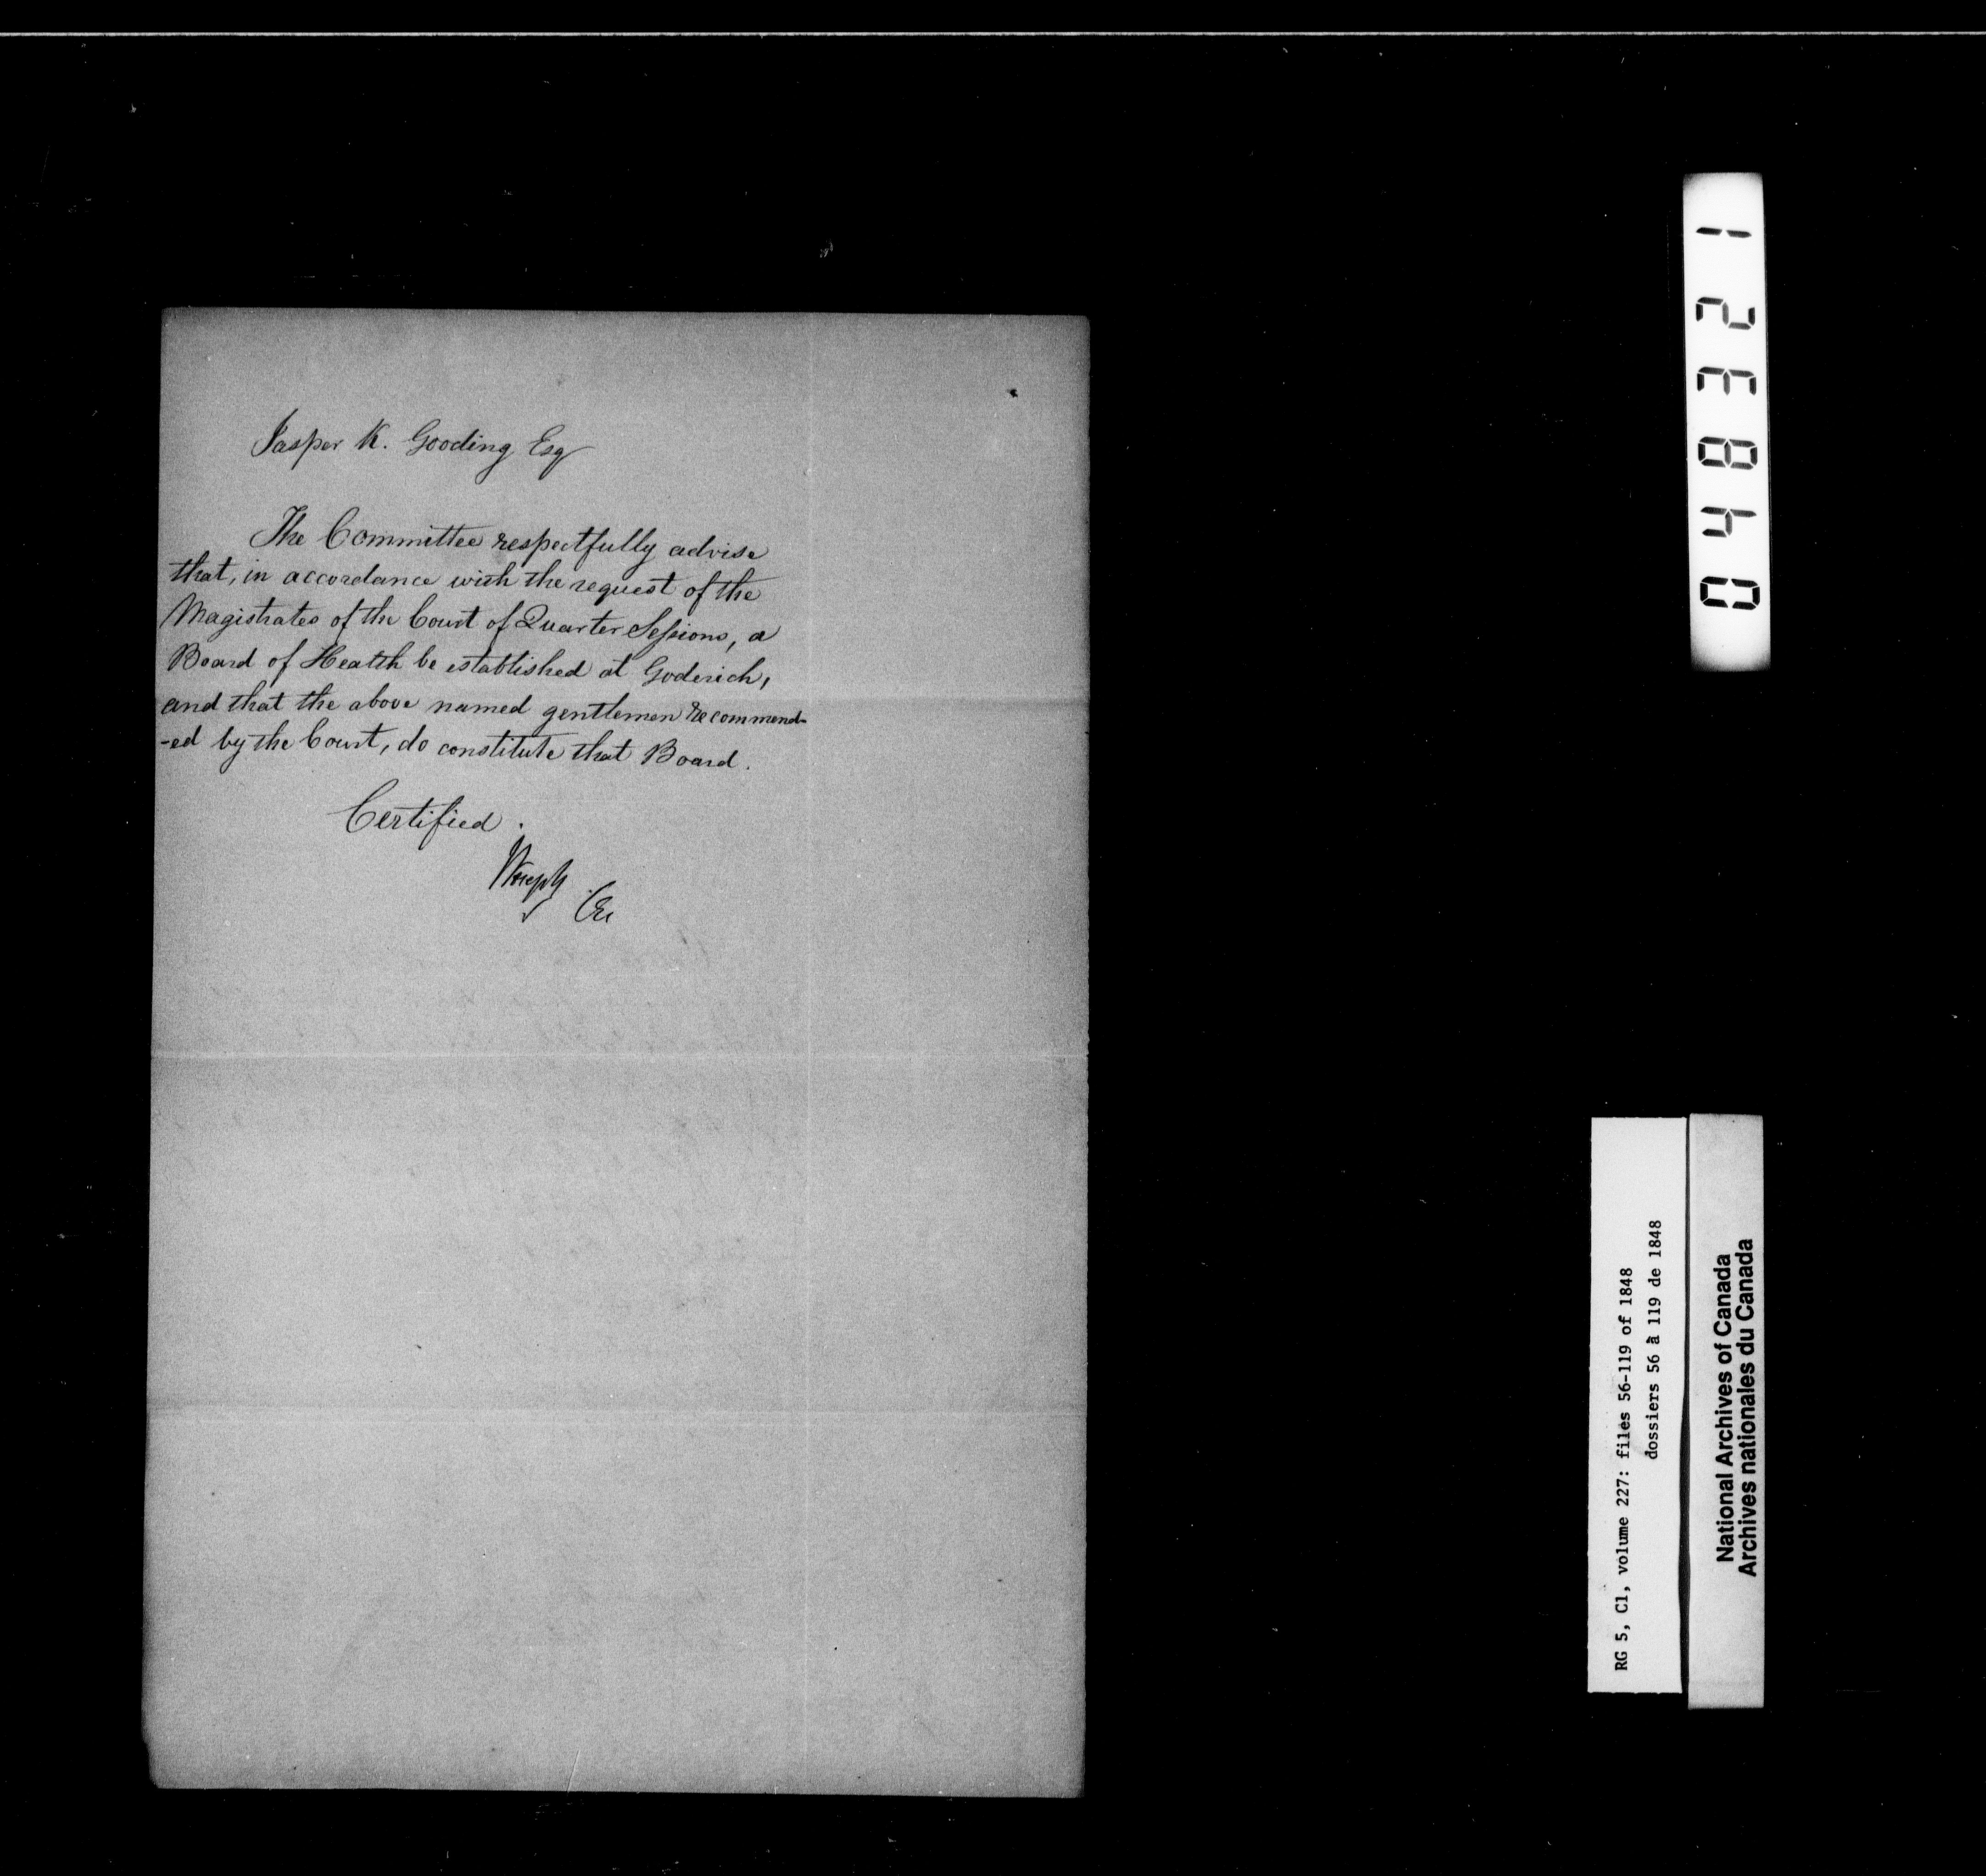 Jasper K. Gooding Esq
The Committee respectfully advise
that, in accordance with the request of the
Magistrates of the Court of Quarter Sessions, a
Board of Health be established at Goderich,
and that the above named gentlemen recommend-
-ed by the Court, do constitute that Board.
Certified.
040821
RG 5, C1, volume 227: files 56-119 of 1848
dossiers 56 à 119 de 1848
National Archives of Canada
Archives nationales du Canada